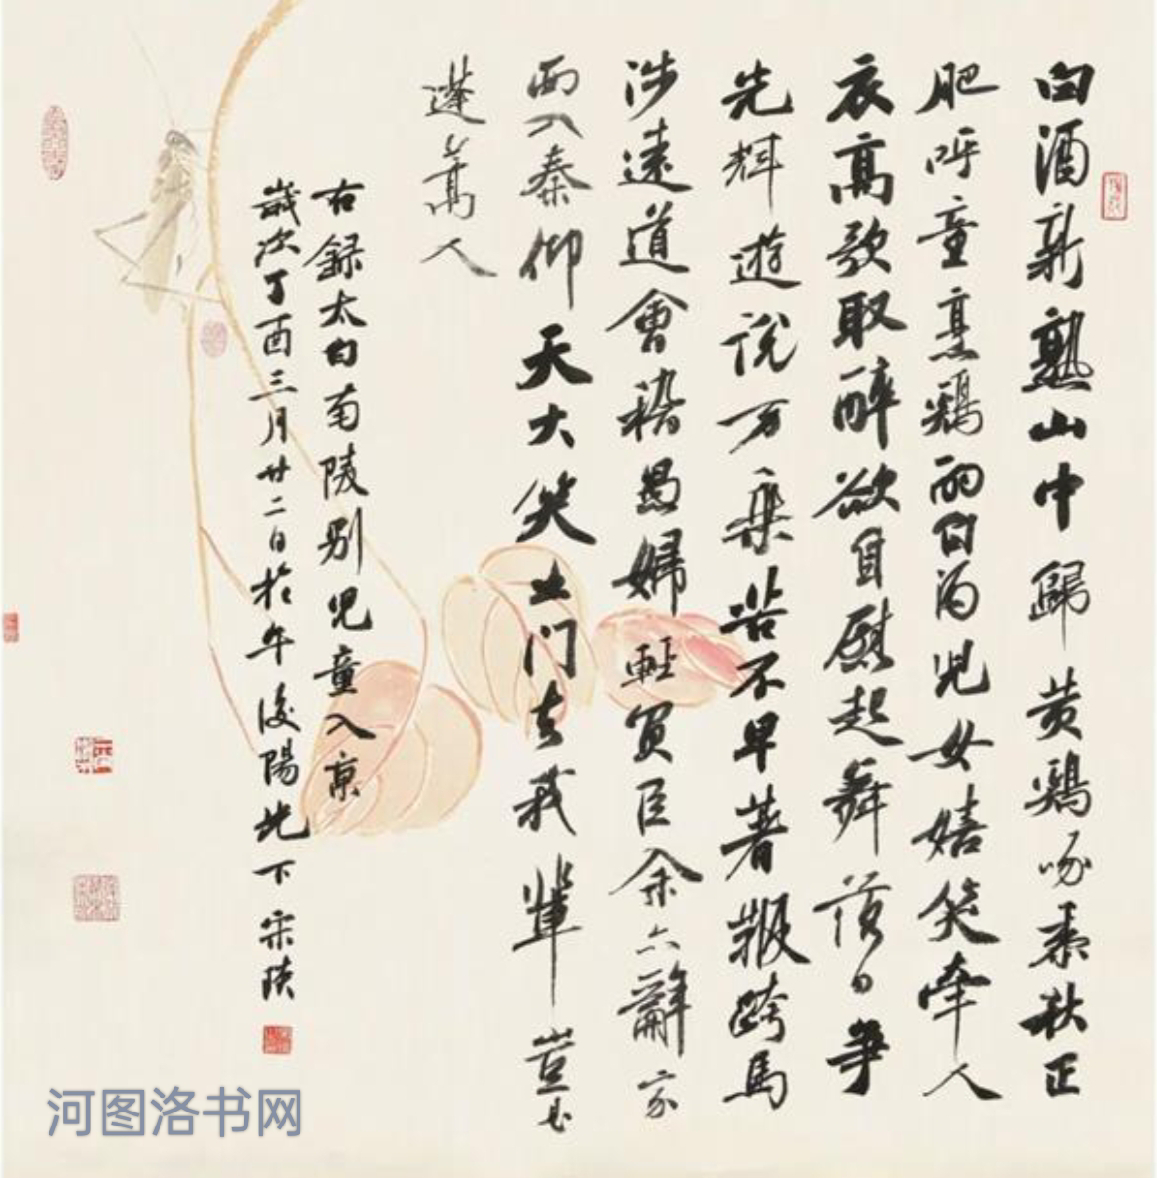 白酒新熟山中歸黄鷄啄黍秋正
肥呼童烹鷄酌白酒児女嬉笑牽人
衣高歌取醉欲自慰起舞落日争
光輝遊説万乗苦不早著鞭跨馬
涉遠道會稽愚婦輕買臣余亦辭家
西入秦仰天大笑出门去我輩豈是
蓬蒿人
右録太白南陵别児童入京
歲次丁酉三月廿二日於午後陽光下宋陵
河图洛书网